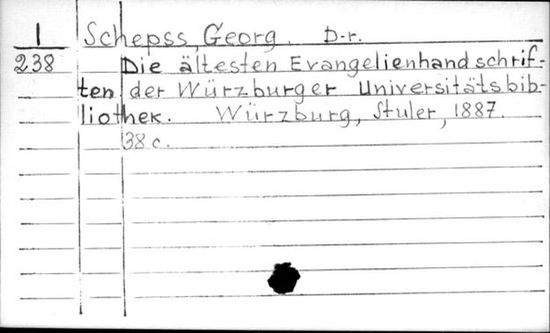 I Schepss, Georg. D-r.
238 Die ältesten Evangelienhandschrif-
ten der Würzburger Universitätsbib-
liothek. Würzburg, Stuler, 1887.
38 c.